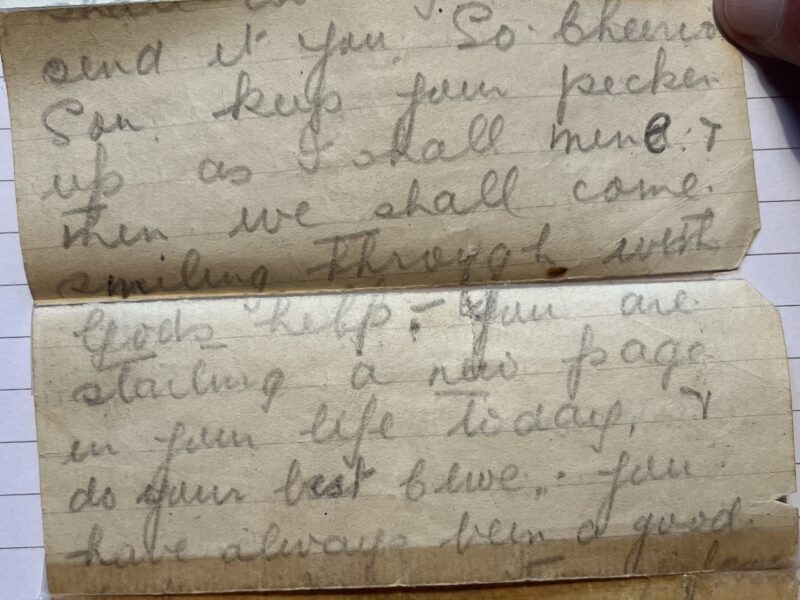 send it you. So Cheerio
Son. keep your pecker
up as I shall mine. &
then we shall come
smiling through with
Gods help. - you are
starting a new page
in your life today, &
do your best
you
have always been a good